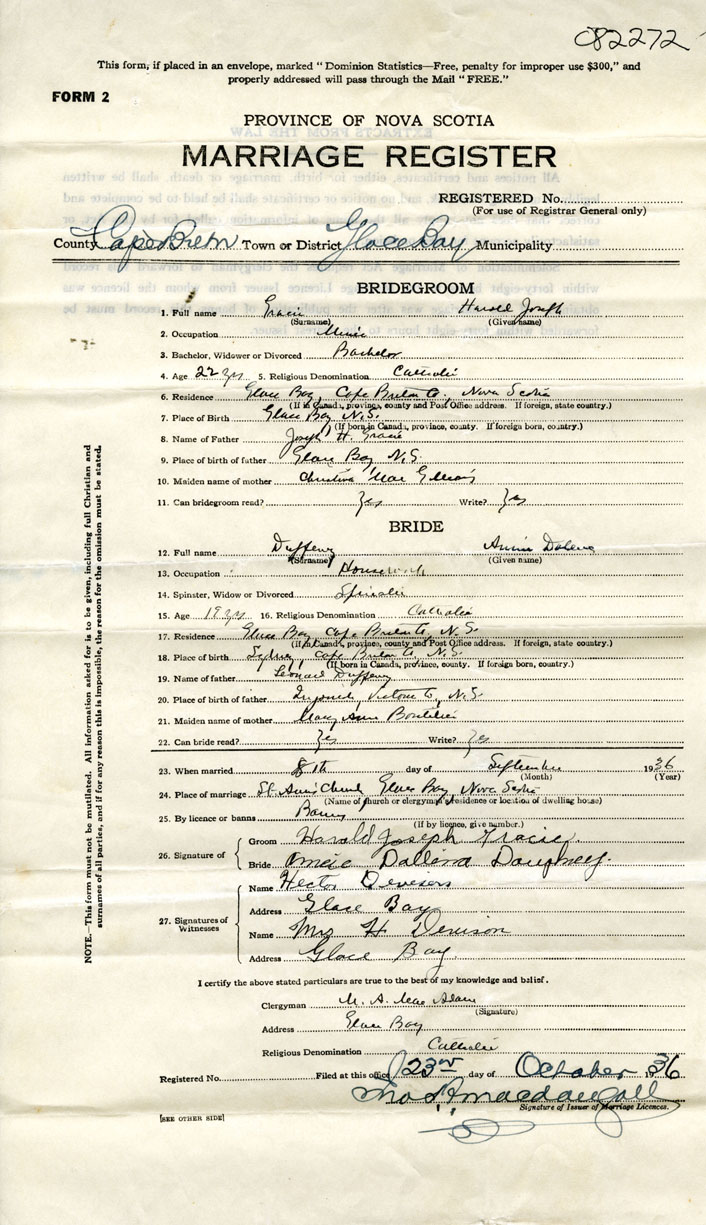 082272
This form, if placed in an envelope, marked "Dominion Statistics—Free, penalty for improper use $300," and
properly addressed will pass through the Mail "FREE."
FORM 2
PROVINCE OF NOVA SCOTIA
MARRIAGE REGISTER
REGISTERED No.
(For use of Registrar General only)
County Cape Breton Town or District Glace Bay Municipality
BRIDEGROOM
1. Full name Gracie Harold Joseph
(Surname) (Given name)
2. Occupation Miner
3. Bachelor, Widower or Divorced Bachelor
4. Age 22 yrs 5. Religious Denomination Catholic
6. Residence Glace Bay, Cape Breton Co, Nova Scotia
(If in Canada, province, county and Post Office address. If foreign, state country.)
7. Place of Birth Glace Bay N.S.
(If born in Canada, province, county. If foreign born, country.)
8. Name of Father Joseph H. Gracie
9. Place of birth of father Glace Bay N.S.
10. Maiden name of mother Christina Mac
11. Can bridegroom read? Yes Write? Yes
BRIDE
12. Full name Duffeny Annie Dolena
(Surname) (Given name)
13. Occupation Housework
14. Spinster, Widow or Divorced Spinster
15. Age 19 yrs 16. Religious Denomination Catholic
17. Residence Glace Bay, Cape Breton Co, N.S.
(If in Canada, province, county and Post Office address. If foreign, state country.)
18. Place of birth Sydney, Cape Breton Co, N.S.
(If born in Canada, province, county. If foreign born, country.)
19. Name of father Leonard Duffeny
20. Place of birth of father Victoria Co, N.S.
21. Maiden name of mother Mary Ann Boutilier
22. Can bride read? Yes Write? Yes
23. When married 8th day of September 1936
(Month) (Year)
24. Place of marriage St. Ann's Church Glace Bay, Nova Scotia
(Name of church or clergyman's residence or location of dwelling house)
25. By licence or banns Banns
(If by licence, give number.)
26. Signature of Groom Harold Joseph Gracie.
Bride Annie Dallena Dauphney.
27. Signatures of Witnesses
Name Hector
Address Glace Bay
Name Mrs H Denison
Address Glace Bay
I certify the above stated particulars are true to the best of my knowledge and belief.
Clergyman M. A. Mac Adam
(Signature)
Address Glace Bay
Religious Denomination Catholic
Registered No. Filed at this office 23rd day of October 1936
Jno A Macdougall
Signature of Issuer of Marriage Licences.
[SEE OTHER SIDE]
NOTE.—This form must not be mutilated. All information asked for is to be given, including full Christian and
surnames of all parties, and if for any reason this is impossible, the reason for the omission must be stated.